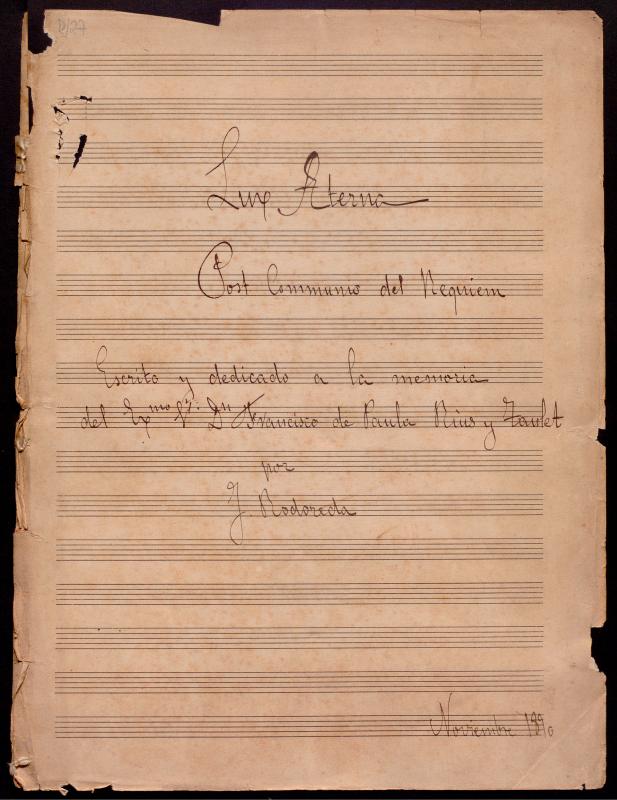 Lux Æterna
Post Communio del Requiem
Escrito y dedicado a la memoria
del Exmo Sr: Dn Francisco de Paula Rius y Taulet
por
J. Rodoreda
Noviembre 1890